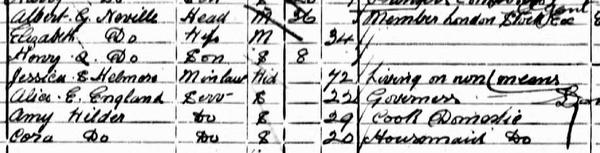 Albert G. Neville Head M 36 Member London Stock Exc
Elizabeth Do Wife M 34
Henry Q. Do Son S 8
Jessica S Helmore M in law Wid 72 Living on own means
Alice E. England Serv S 22 Governess
Amy Hilder Do S 29 Cook Domestic
Cora Do Do S 20 Housemaid Do